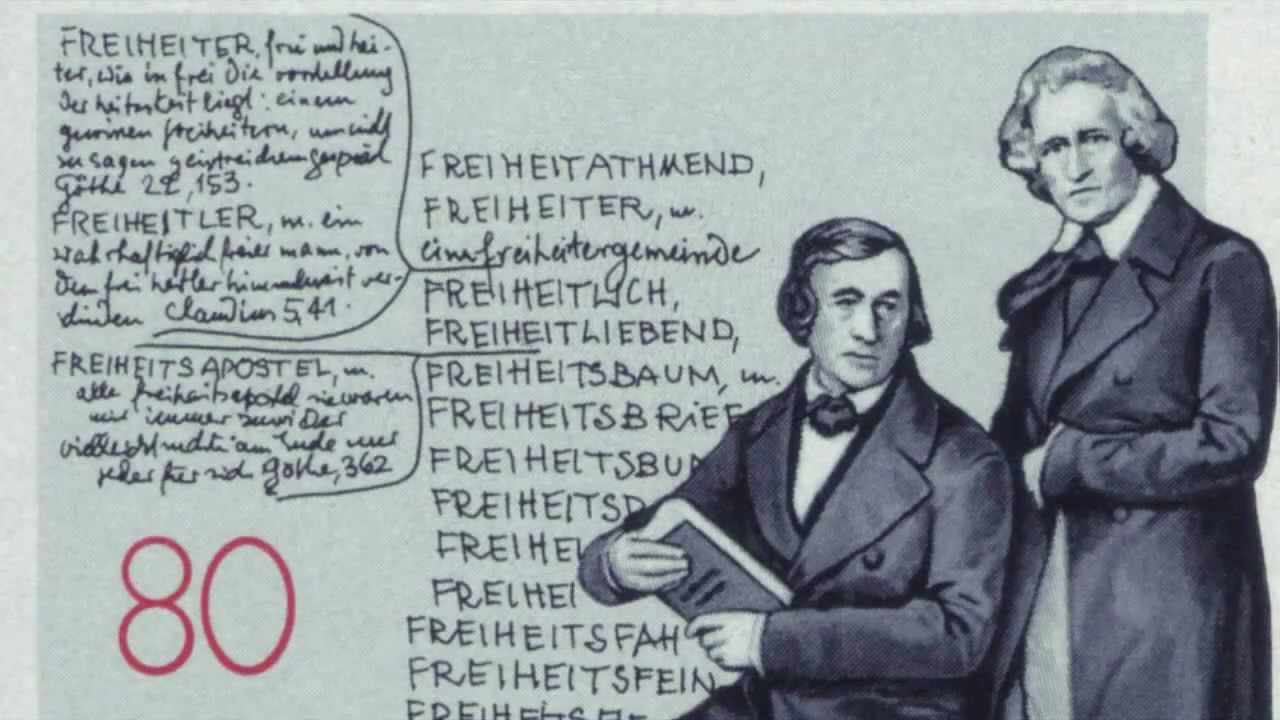 FREIHEITER, frei und hei-
ter, wie in frei die vorstellung
der heiterkeit liegt: einem
gewissen freiheitern, um nicht
zu sagen geistreichem gespräch
Göthe 22, 153.
FREIHEITLER, m. ein
wahrhaftiglich freier mann, von
dem freiheitler himmelweit ver-
schieden Claudius 5, 41.
FREIHEITSAPOSTEL, m.
alle freiheitsapostel sie waren
mir immer zuwider
willkür suchte am Ende nur
jeder für sich Göthe, 362
FREIHEITATHMEND,
FREIHEITER, m.
ein freiheitergemeinde
FREIHEITLICH,
FREIHEITLIEBEND,
FREIHEITSBAUM, m.
FREIHEITSBRIEF
FREIHEITSBUN
FREIHEITSD
FREIHEI
FREIHEI
FREIHEITSFAH
FREIHEITSFEIN
FREIHEITS
80